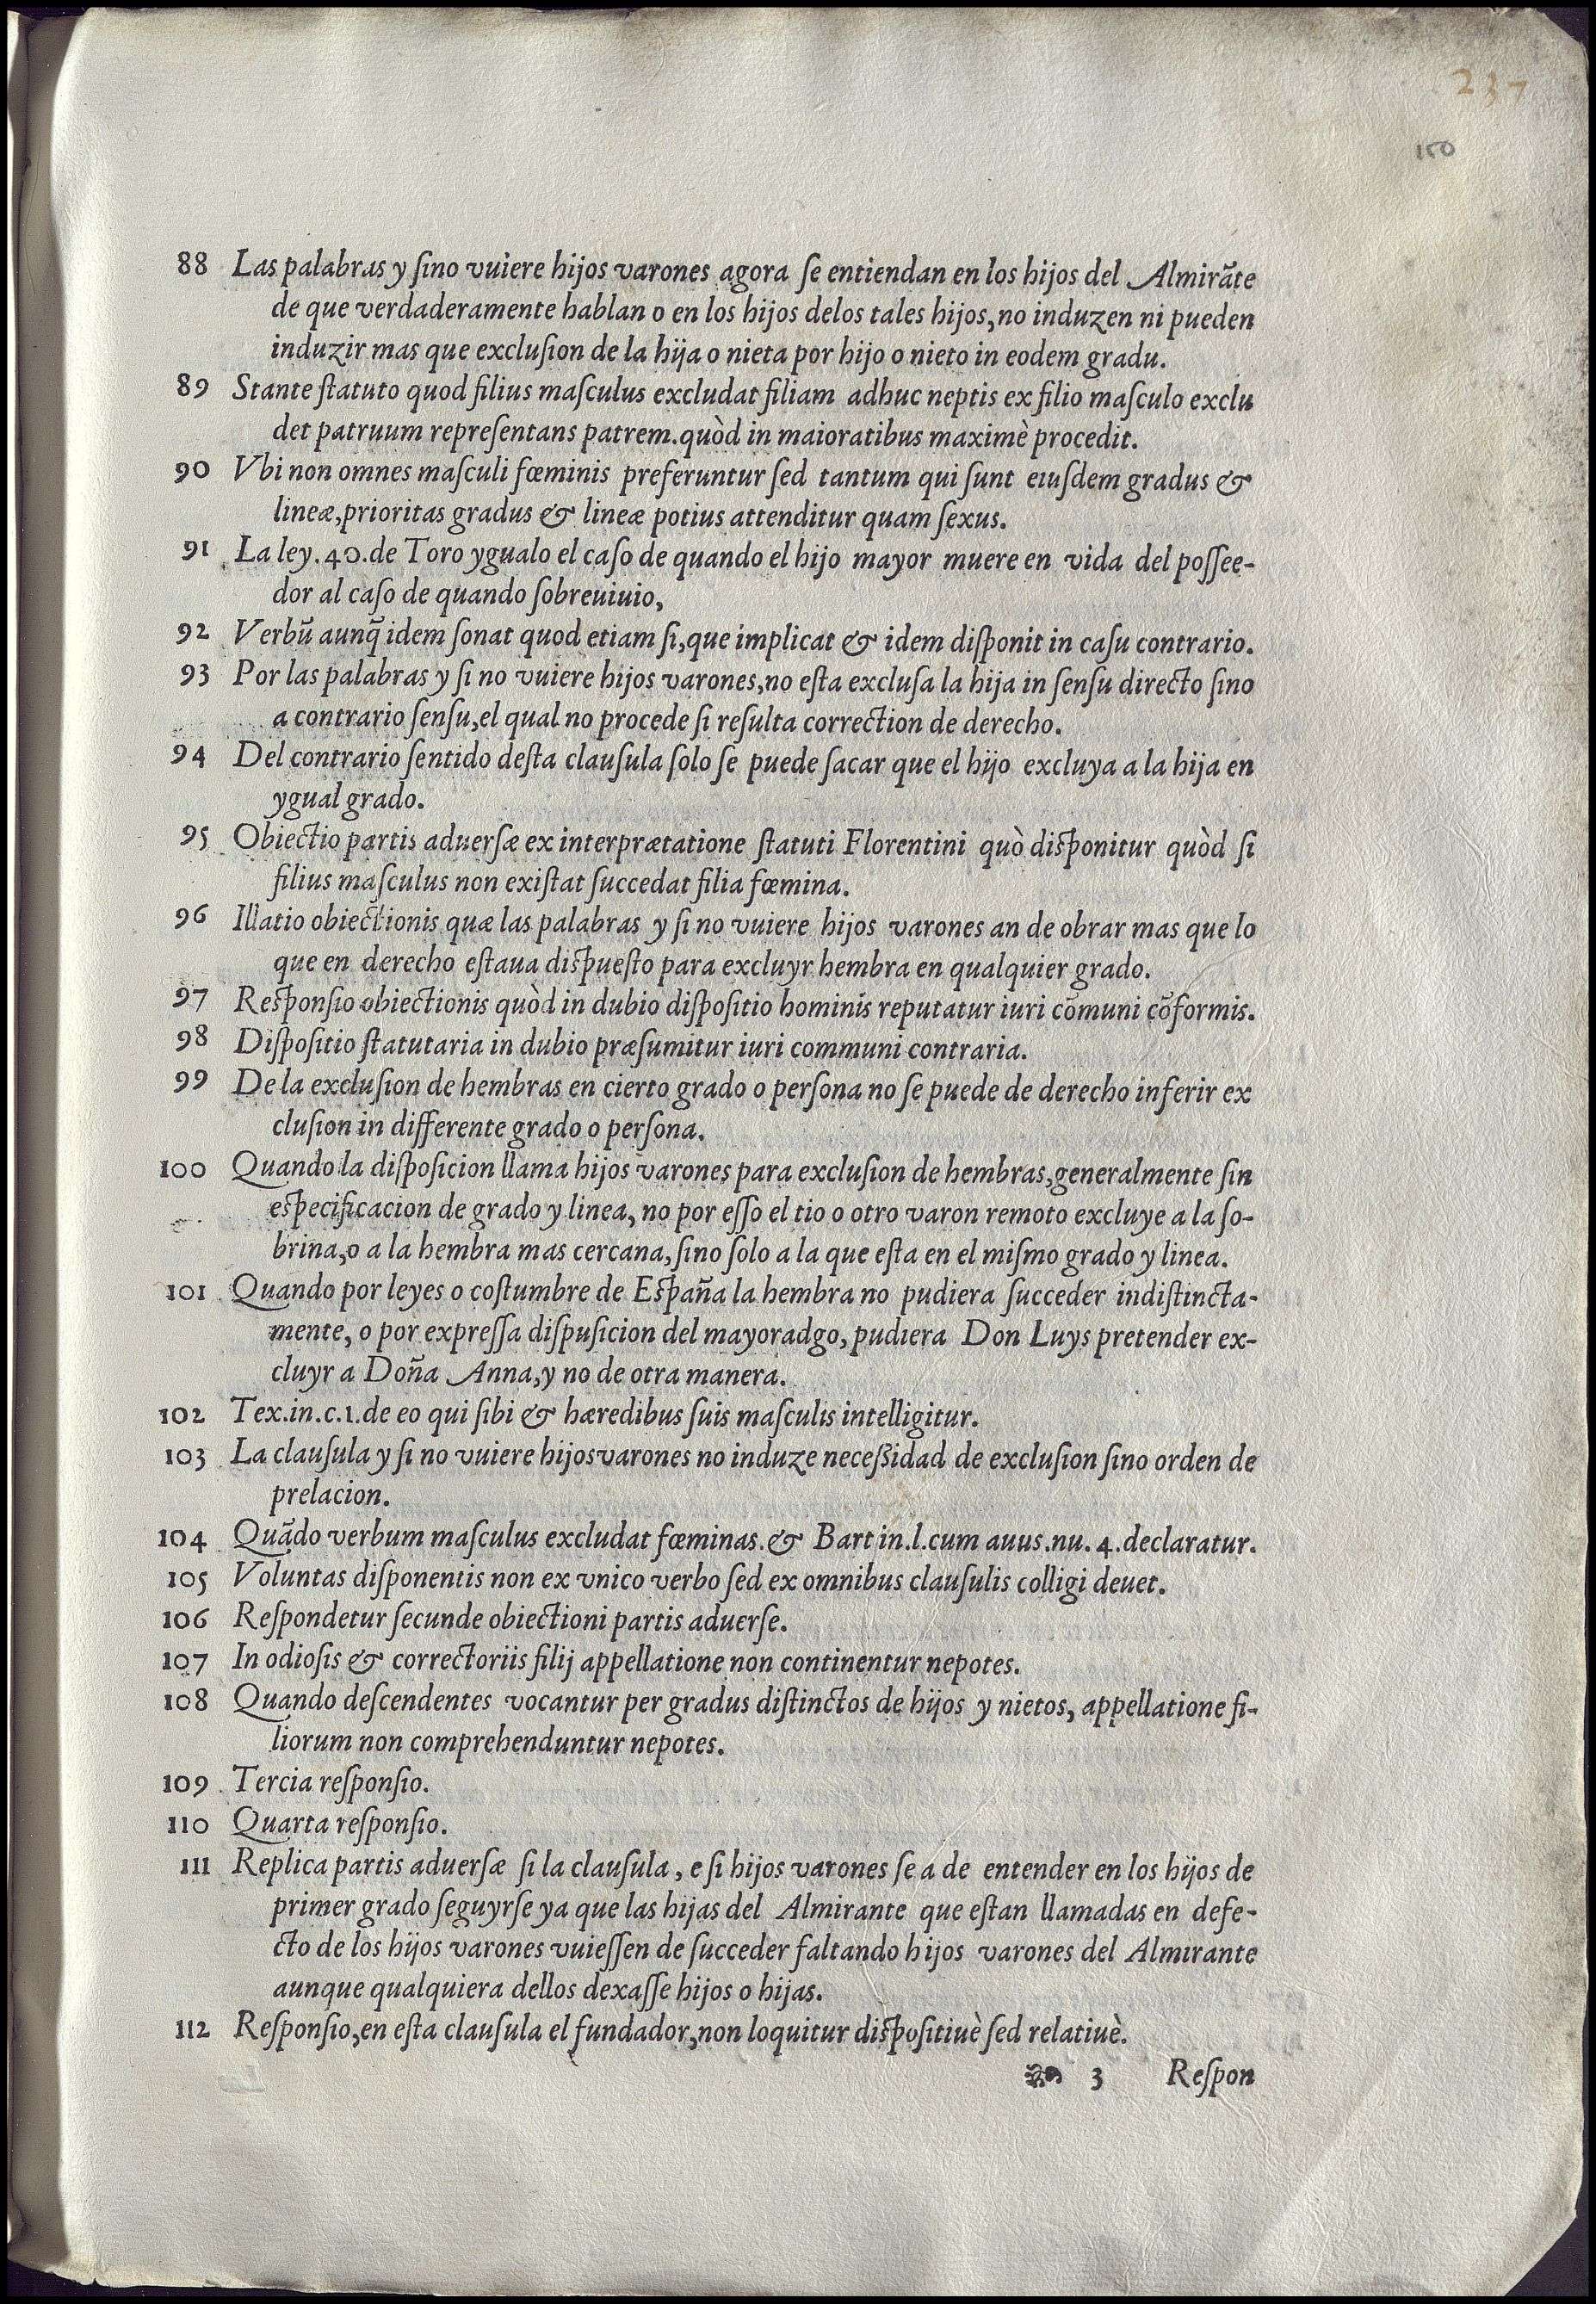 237
150
88 Las palabras y ſino vuiere hijos varones agora ſe entiendan en los hijos del Almirãte
de que verdaderamente hablan o en los hijos delos tales hijos, no induzen ni pueden
induzir mas que excluſion de la hija o nieta por hijo o nieto in eodem gradu.
89 Stante ſtatuto quod filius maſculus excludat filiam adhuc neptis ex filio maſculo exclu
det patruum repreſentans patrem. quòd in maioratibus maximè procedit.
90 Vbi non omnes maſculi fœminis preferuntur ſed tantum qui ſunt eiuſdem gradus &
lineæ, prioritas gradus & lineæ potius attenditur quam ſexus.
91 La ley. 40. de Toro ygualo el caſo de quando el hijo mayor muere en vida del poſſee-
dor al caſo de quando ſobreuiuio,
92 Verbũ aunq̃ idem ſonat quod etiam ſi, que implicat & idem diſponit in caſu contrario.
93 Por las palabras y ſi no vuiere hijos varones, no eſta excluſa la hija in ſenſu directo ſino
a contrario ſenſu, el qual no procede ſi reſulta correction de derecho.
94 Del contrario ſentido deſta clauſula ſolo ſe puede ſacar que el hijo excluya a la hija en
ygual grado.
95 Obiectio partis aduerſæ ex interprætatione ſtatuti Florentini quò diſponitur quòd ſi
filius maſculus non exiſtat ſuccedat filia fœmina.
96 Illatio obiectionis quæ las palabras y ſi no vuiere hijos varones an de obrar mas que lo
que en derecho eſtaua diſpueſto para excluyr hembra en qualquier grado.
97 Reſponſio obiectionis quòd in dubio diſpoſitio hominis reputatur iuri cõmuni cõformis.
98 Diſpoſitio ſtatutaria in dubio præſumitur iuri communi contraria.
99 De la excluſion de hembras en cierto grado o perſona no ſe puede de derecho inferir ex
cluſion in differente grado o perſona.
100 Quando la diſpoſicion llama hijos varones para excluſion de hembras, generalmente ſin
eſpecificacion de grado y linea, no por eſſo el tio o otro varon remoto excluye a la ſo-
brina, o a la hembra mas cercana, ſino ſolo a la que eſta en el miſmo grado y linea.
101 Quando por leyes o coſtumbre de Eſpaña la hembra no pudiera ſucceder indiſtincta-
mente, o por expreſſa diſpuſicion del mayoradgo, pudiera Don Luys pretender ex-
cluyr a Doña Anna, y no de otra manera.
102 Tex. in. c. 1. de eo qui ſibi & hæredibus ſuis maſculis intelligitur.
103 La clauſula y ſi no vuiere hijos varones no induze neceßidad de excluſion ſino orden de
prelacion.
104 Quãdo verbum maſculus excludat fœminas. & Bart in. l. cum auus. nu. 4. declaratur.
105 Voluntas diſponentis non ex vnico verbo ſed ex omnibus clauſulis colligi deuet.
106 Reſpondetur ſecunde obiectioni partis aduerſe.
107 In odioſis & correctoriis filij appellatione non continentur nepotes.
108 Quando deſcendentes vocantur per gradus diſtinctos de hijos y nietos, appellatione fi-
liorum non comprehenduntur nepotes.
109 Tercia reſponſio.
110 Quarta reſponſio.
111 Replica partis aduerſæ ſi la clauſula, e ſi hijos varones ſe a de entender en los hijos de
primer grado ſeguyrſe ya que las hijas del Almirante que eſtan llamadas en defe-
cto de los hijos varones vuieſſen de ſucceder faltando hijos varones del Almirante
aunque qualquiera dellos dexaſſe hijos o hijas.
112 Reſponſio, en eſta clauſula el fundador, non loquitur diſpoſitiuè ſed relatiuè.
3 Reſpon